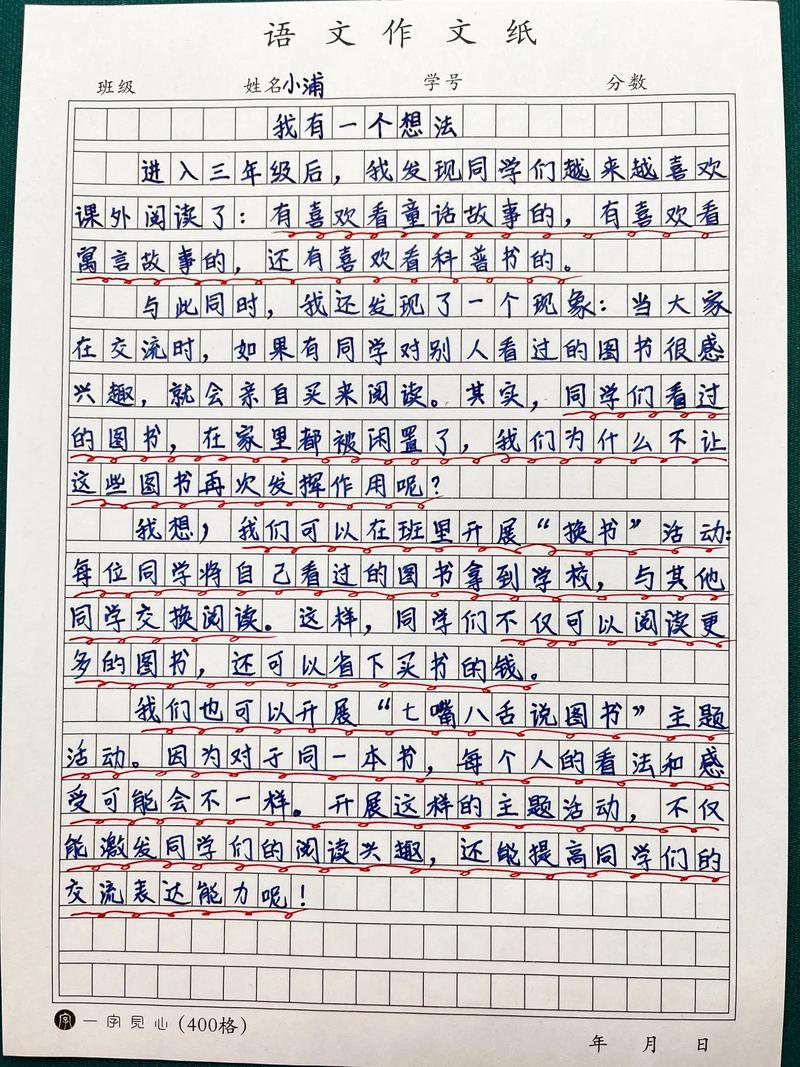 语文作文纸
班级 姓名小浦 学号 分数
我有一个想法
进入三年级后，我发现同学们越来越喜欢
课外阅读了：有喜欢看童话故事的，有喜欢看
寓言故事的，还有喜欢看科普书的。
与此同时，我还发现了一个现象：当大家
在交流时，如果有同学对别人看过的图书很感
兴趣，就会亲自买来阅读。其实，同学们看过
的图书，在家里都被闲置了，我们为什么不让
这些图书再次发挥作用呢？
我想，我们可以在班里开展“换书”活动：
每位同学将自己看过的图书拿到学校，与其他
同学交换阅读。这样，同学们不仅可以阅读更
多的图书，还可以省下买书的钱。
我们也可以开展“七嘴八舌说图书”主题
活动。因为对于同一本书，每个人的看法和感
受可能会不一样。开展这样的主题活动，不仅
能激发同学们的阅读兴趣，还能提高同学们的
交流表达能力呢！
字 一字见心（400格）
年 月 日